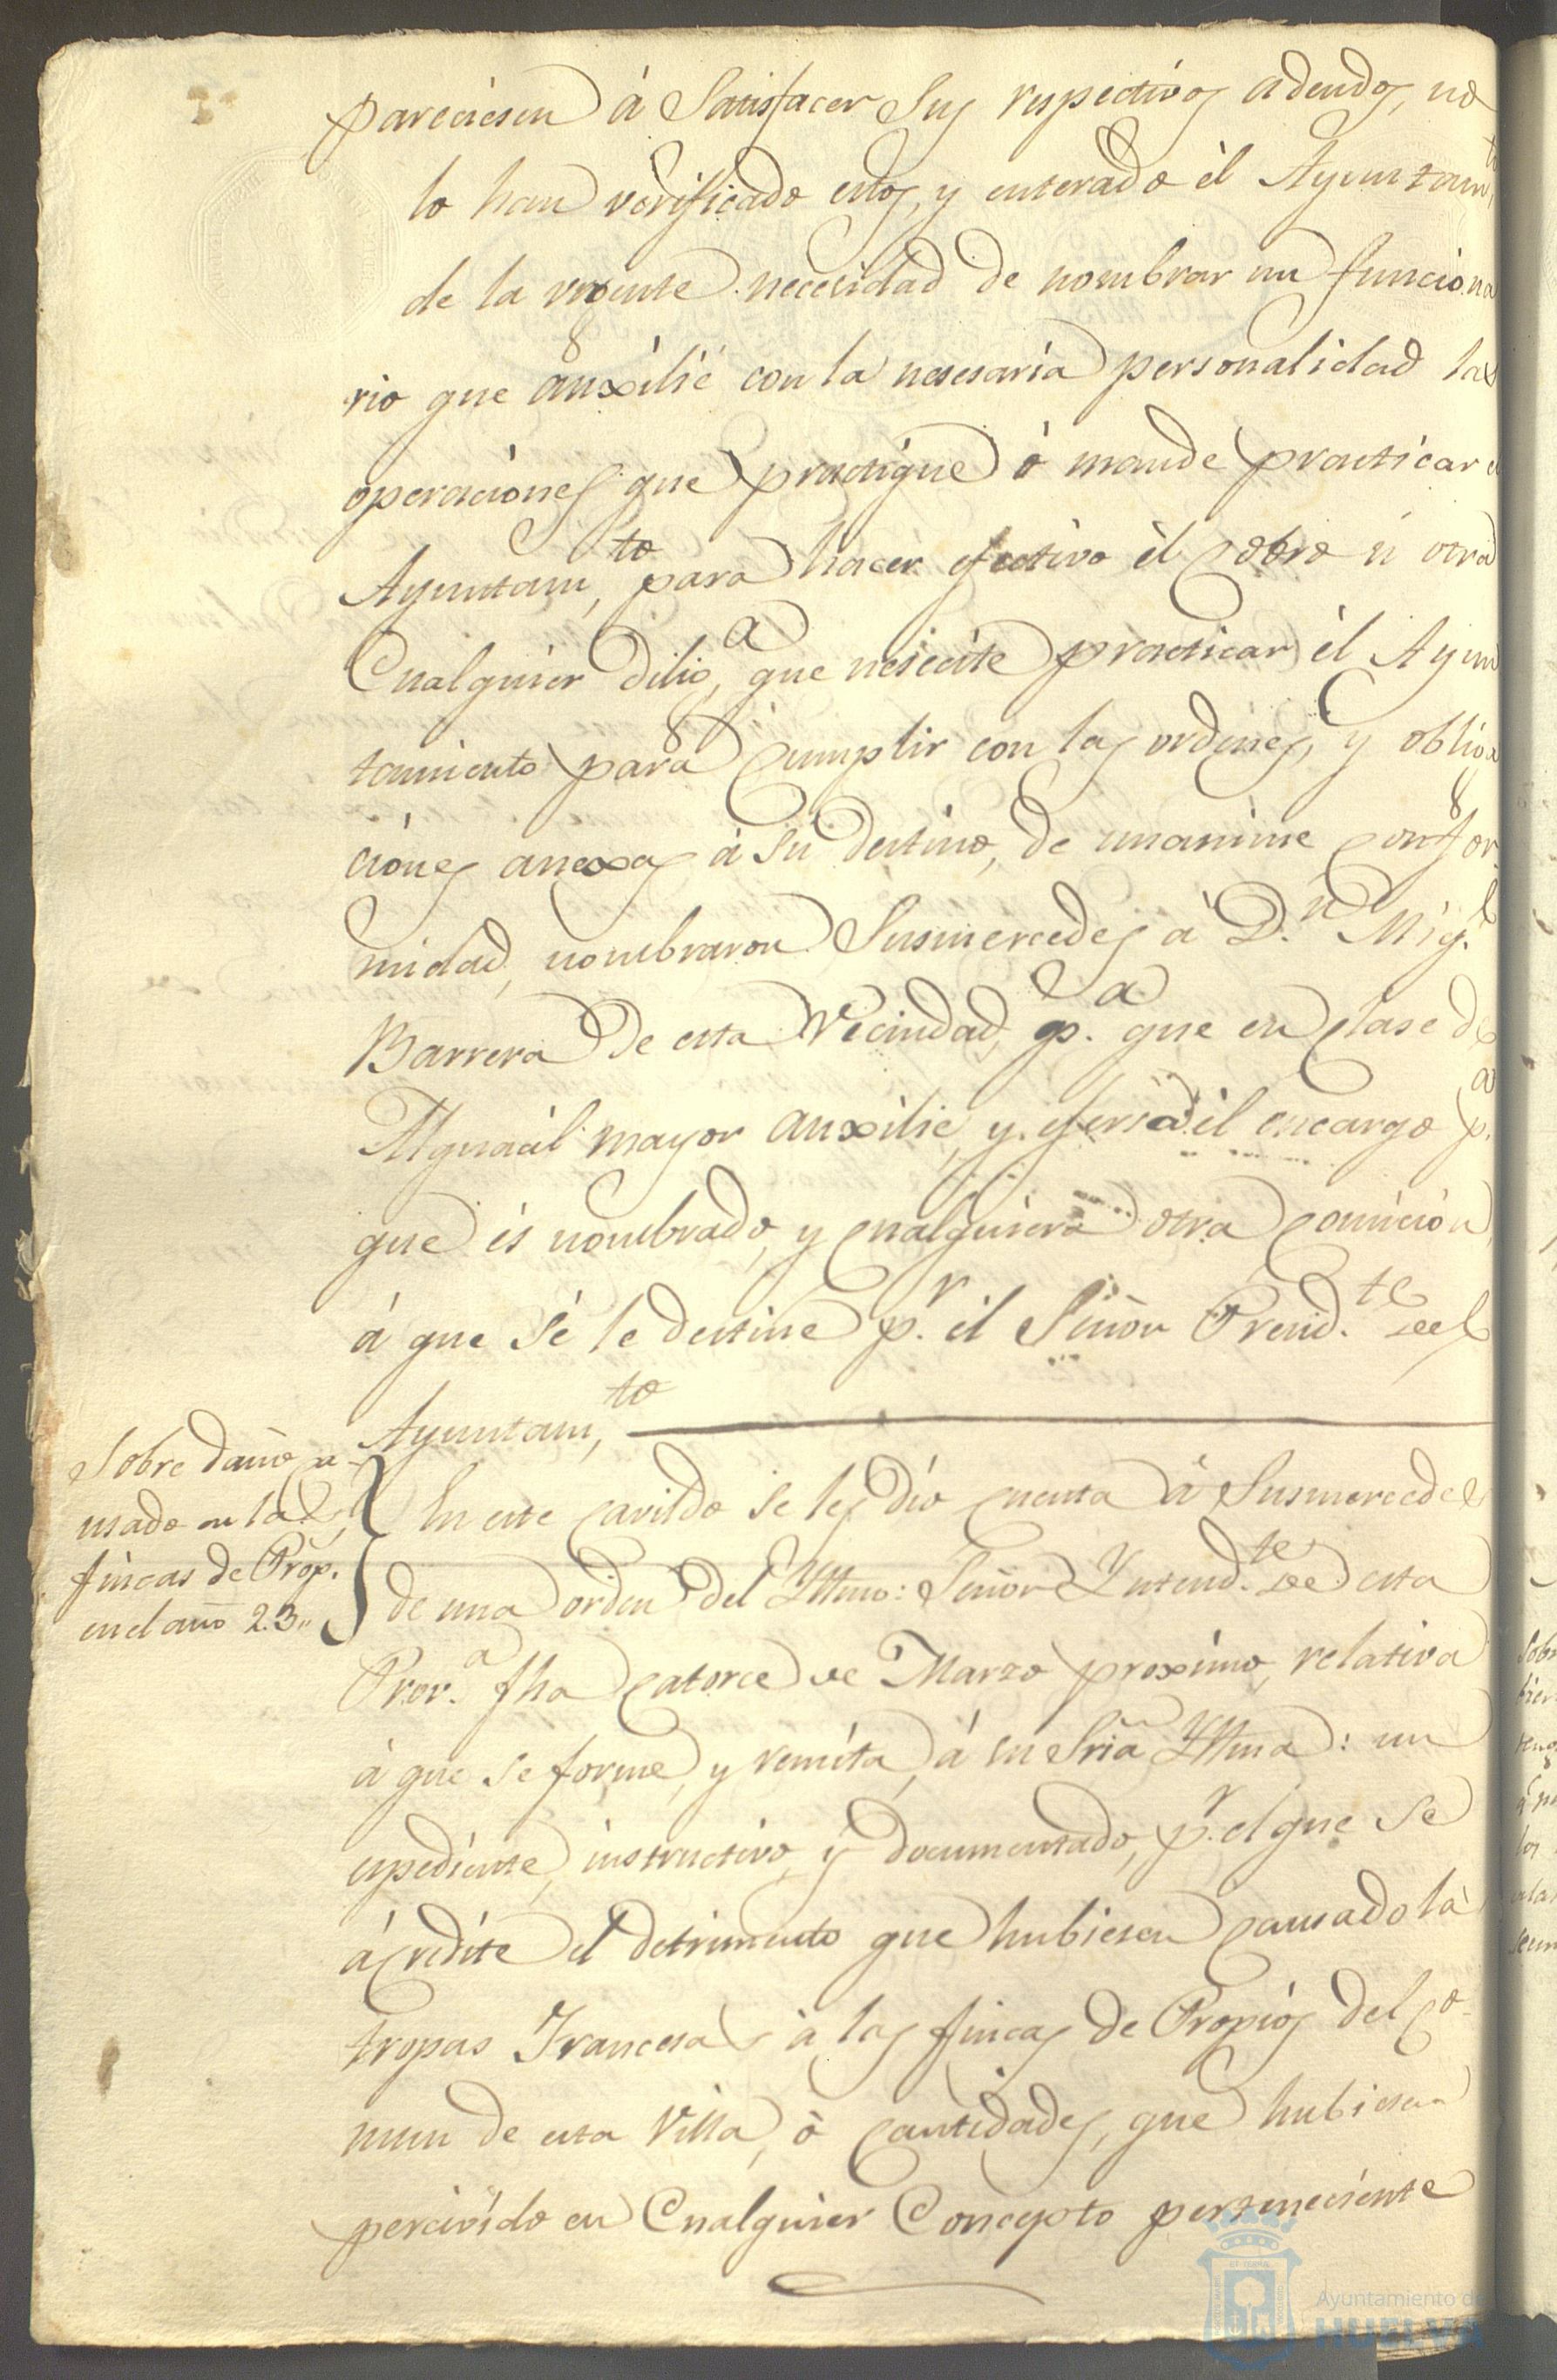 pareciesen á Satisfacer Sus respectivos adeudos, no
lo han verificado estos, y enterado él Ayuntam,to
de la urgente necesidad de nombrar un funciona
rio que auxilie con la nesesaria personalidad las
operaciones que practique ó mande practicar el
Ayuntam,to para hacer efectivo él cobro ú otra
Cualquier dilig,a que nesecite practicar él Ayun
tamiento para cumplir con las ordenes, y obliga
ciones anexas á su destino, de unanime confor
midad, nombraron Susmercedes á D.n Mig.l
Barrera de esta Vecindad, p.a que en clase de
Alguacil mayor auxilie, y ejersa él encargo p.a
que és nombrado, y cualquiera otra comición
á que sé le destine p.r él Señor Presid.te del
Ayuntam,to
Sobre daño ca
usado en las
fincas de Prop.s
en el año 23,,
En este cavildo se les dio cuenta á Susmercedes
de una orden del Yltmo: Señor Yntend.te de esta
Prov.a fha catorce de Marzo proximo, relativa
á que se forme, y remita, á su Sria Yltma: un
espediente, instructivo, y documentado, p.r el que se
ácredite el detrimento que hubiesen causado las
tropas Francesas á las fincas de Propios del co-
mun de esta Villa, ó cantidades, que hubiesen
percivido en Cualquier Concepto perteneciente
Sobr
Ayuntamiento de
HUELVA